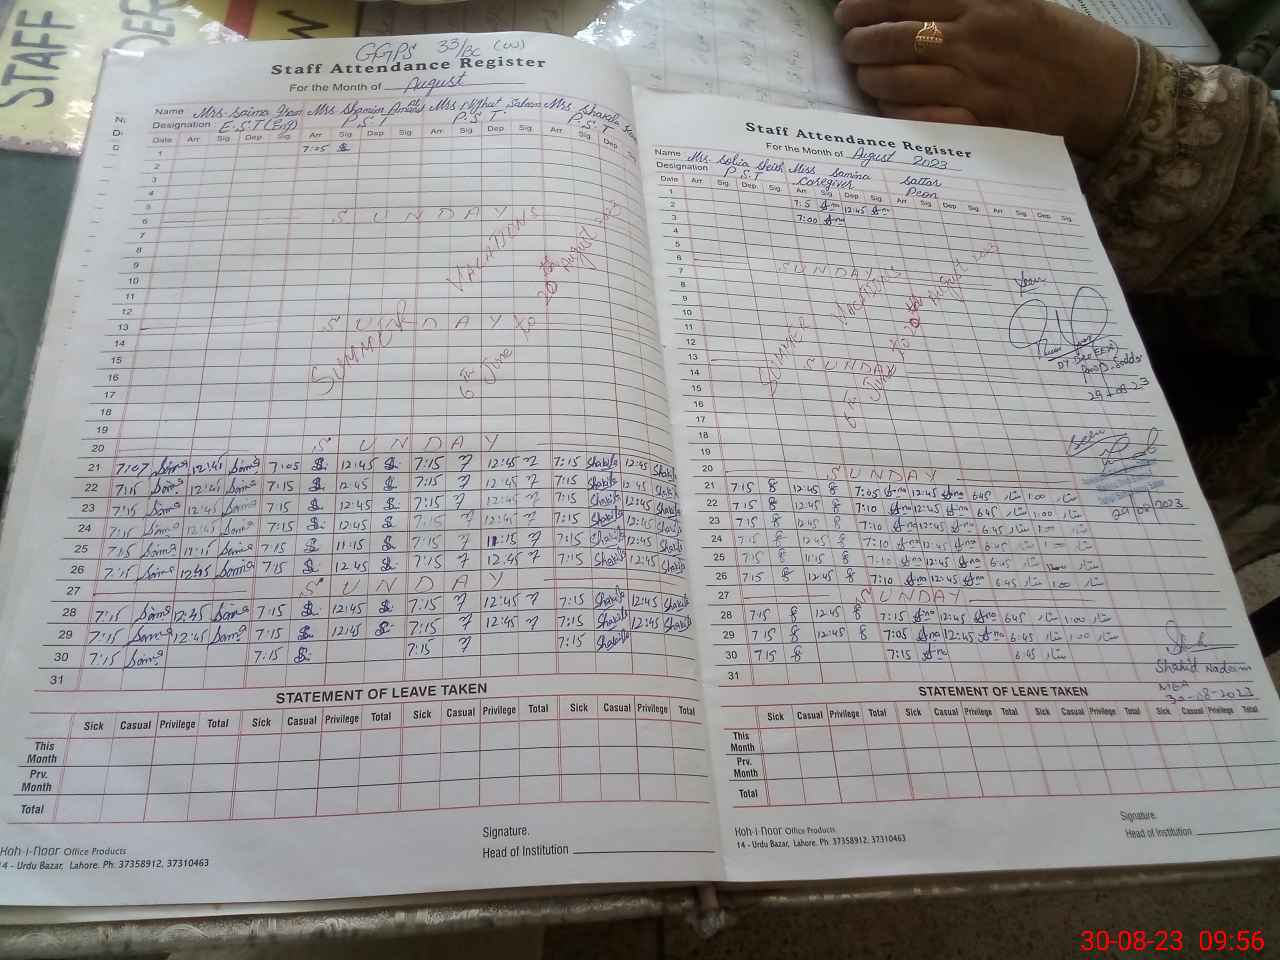 STAFF
GGPS 33/BC (W)
Staff Attendance Register
For the Month of August
Name Mrs. Saima Mrs Shamim Mrs Nighat Mrs Shakila
Designation E.S.T (Eng) P.S.T P.S.T. P.S.T
Date Arr Sig Dep Sig Arr Sig Dep Sig Arr Sig Dep Sig Arr Sig Dep Sig
1 7:05
2
3
4
5
6 SUNDAY
7
8
9
10
11
12
13 SUNDAY
14
15
16
17
18
19
20 SUNDAY
SUMMER VACATIONS
6th June to 20th August 2023
21 7:07 Saima 12:45 Saima 7:05 12:45 7:15 12:45 7:15 Shakila 12:45 Shakila
22 7:15 Saima 12:45 Saima 7:15 12:45 7:15 12:45 7:15 Shakila 12:45 Shakila
23 7:15 Saima 12:45 Saima 7:15 12:45 7:15 12:45 7:15 Shakila 12:45 Shakila
24 7:15 Saima 12:45 Saima 7:15 12:45 7:15 12:45 7:15 Shakila 12:45 Shakila
25 7:15 Saima 11:15 Saima 7:15 11:15 7:15 11:15 7:15 Shakila 12:45 Shakila
26 7:15 Saima 12:45 Saima 7:15 12:45 7:15 12:45 7:15 Shakila 12:45 Shakila
27 SUNDAY
28 7:15 Saima 12:45 Saima 7:15 12:45 7:15 12:45 7:15 Shakila 12:45 Shakila
29 7:15 Saima 12:45 Saima 7:15 12:45 7:15 12:45 7:15 Shakila 12:45 Shakila
30 7:15 Saima 7:15 7:15 7:15 Shakila
31
STATEMENT OF LEAVE TAKEN
Sick Casual Privilege Total Sick Casual Privilege Total Sick Casual Privilege Total Sick Casual Privilege Total
This Month
Prv. Month
Total
Signature.
Head of Institution
Koh-i-noor Office Products
14 - Urdu Bazar, Lahore. Ph: 37358912, 37310463
Staff Attendance Register
For the Month of August 2023
Name Miss Samina Sattar
Designation P.S.T Caregiver Peon
Date Arr Sig Dep Sig Arr Sig Dep Sig Arr Sig Dep Sig Arr Sig Dep Sig
1
2 7:5 12:45
3 7:00
4
5
6 SUNDAY
7
8
9
10
11
12
13 SUNDAY
14
15
16
17
18
19
20 SUNDAY
SUMMER VACATIONS
6th June to 20th August 2023
Seen
29-08-23
Seen
29/08/2023
21 7:15 12:45 7:05 12:45 6:45 ستار 1:00 ستار
22 7:15 12:45 7:10 12:45 6:45 ستار 1:00 ستار
23 7:15 12:45 7:10 12:45 6:45 ستار 1:00 ستار
24 7:15 12:45 7:10 12:45 6:45 ستار 1:00 ستار
25 7:15 11:15 7:10 12:45 6:45 ستار ستار
26 7:15 12:45 7:10 12:45 6:45 ستار 1:00 ستار
27 SUNDAY
28 7:15 12:45 7:15 12:45 6:45 ستار 1:00 ستار
29 7:15 12:45 7:05 12:45 6:45 ستار 1:00 ستار
30 7:15 7:15 6:45 ستار
31
Shahid Nadeem
MEA
30-08-2023
STATEMENT OF LEAVE TAKEN
Sick Casual Privilege Total Sick Casual Privilege Total Sick Casual Privilege Total Sick Casual Privilege Total
This Month
Prv. Month
Total
Signature.
Head of Institution
Koh-i-noor Office Products
14 - Urdu Bazar, Lahore. Ph: 37358912, 37310463
30-08-23 09:56